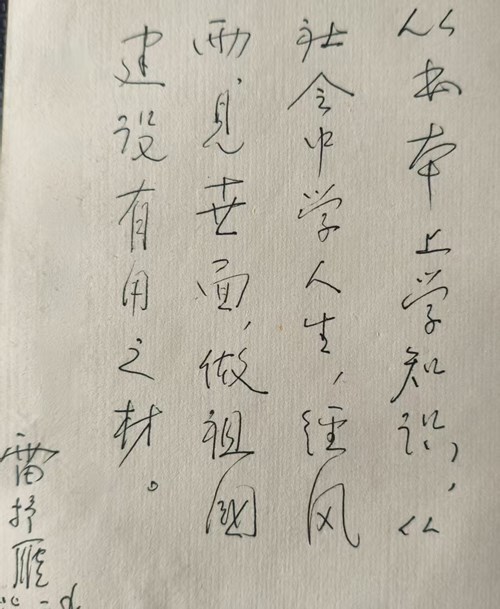 从书本上学知识,从
社会中学人生,經风
雨,見世面,做祖國
建设有用之材。
雷抒雁